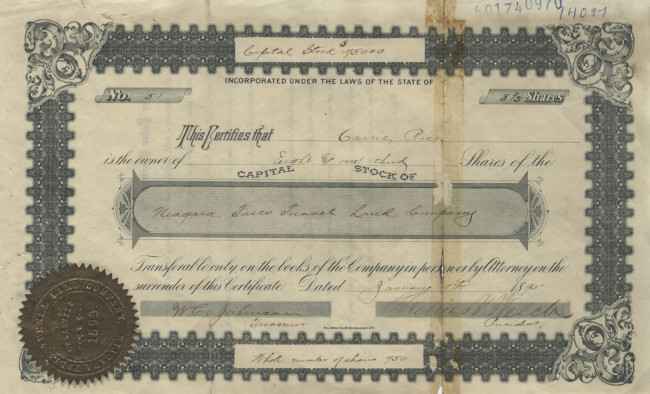 14097
Capital Stock $75000
INCORPORATED UNDER THE LAWS OF THE STATE OF
No. 51 8⅓ Shares
This Certifies that Carrie Rice
is the owner of Eight & one third Shares of the
CAPITAL STOCK OF
Niagara Falls Tunnel Land Company
Transferable only on the books of the Company in person or by Attorney on the
surrender of this Certificate. Dated January 189
W. C. Johnson
Treasurer President
Whole number of shares 750